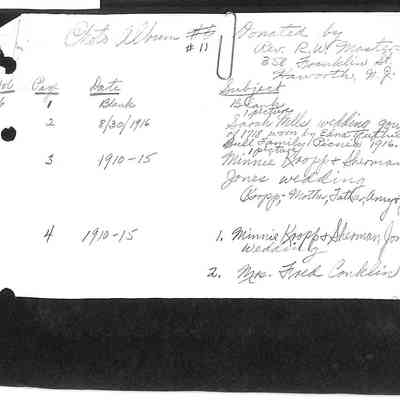 Photo Album #6 Donated by
#11 Rev. R.W.
350 Franklin St.
Haworth, N.J.
Page Date Subject
6 1 Blank Blank
1 picture
2 8/30/1916 Sarah Wells wedding gown
of 1778 worn by Edna
Bull Family Picnic 1916.
1 picture
3 1910-15 Minnie Kropp & Sherman
Jones wedding
Kropp-Mother, Father, Amy &
4 1910-15 1. Minnie Kropp & Sherman Jon
wedding
2. Mrs. Fred Conklin